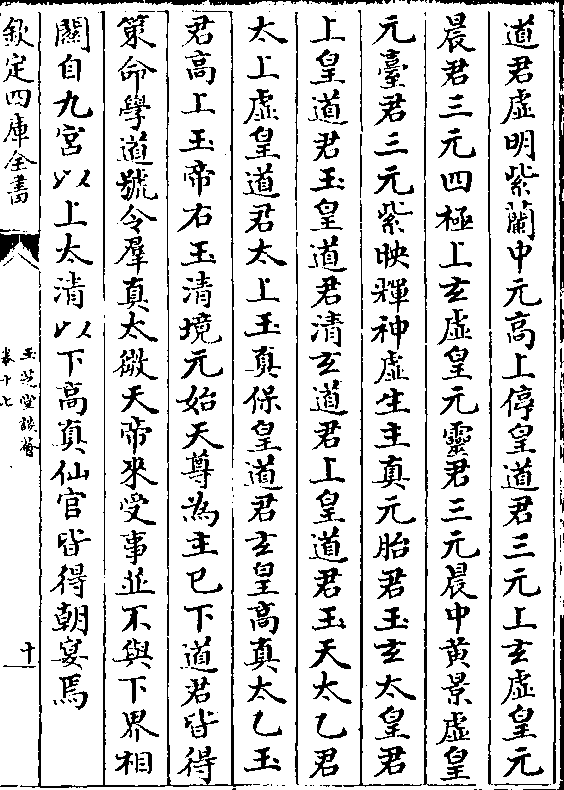 道君虚明紫蘭中元高上停皇道君三元上玄虚皇元
晨君三元四極上玄虚皇元靈君三元晨中黄景虚皇
元臺君三元紫映輝神虚生主真元胎君玉玄太皇君
上皇道君玉皇道君清玄道君上皇道君玉天太乙君
太上虚皇道君太上玉真保皇道君玄皇高真太乙玉
君高上玉帝右玉清境元始天尊為主已下道君皆得
策命學道號令羣真太微天帝來受事並不與下界相
關自九宫以上太清以下高真仙官皆得朝宴焉
欽定四庫全書
玉芝堂談薈
卷十七
十